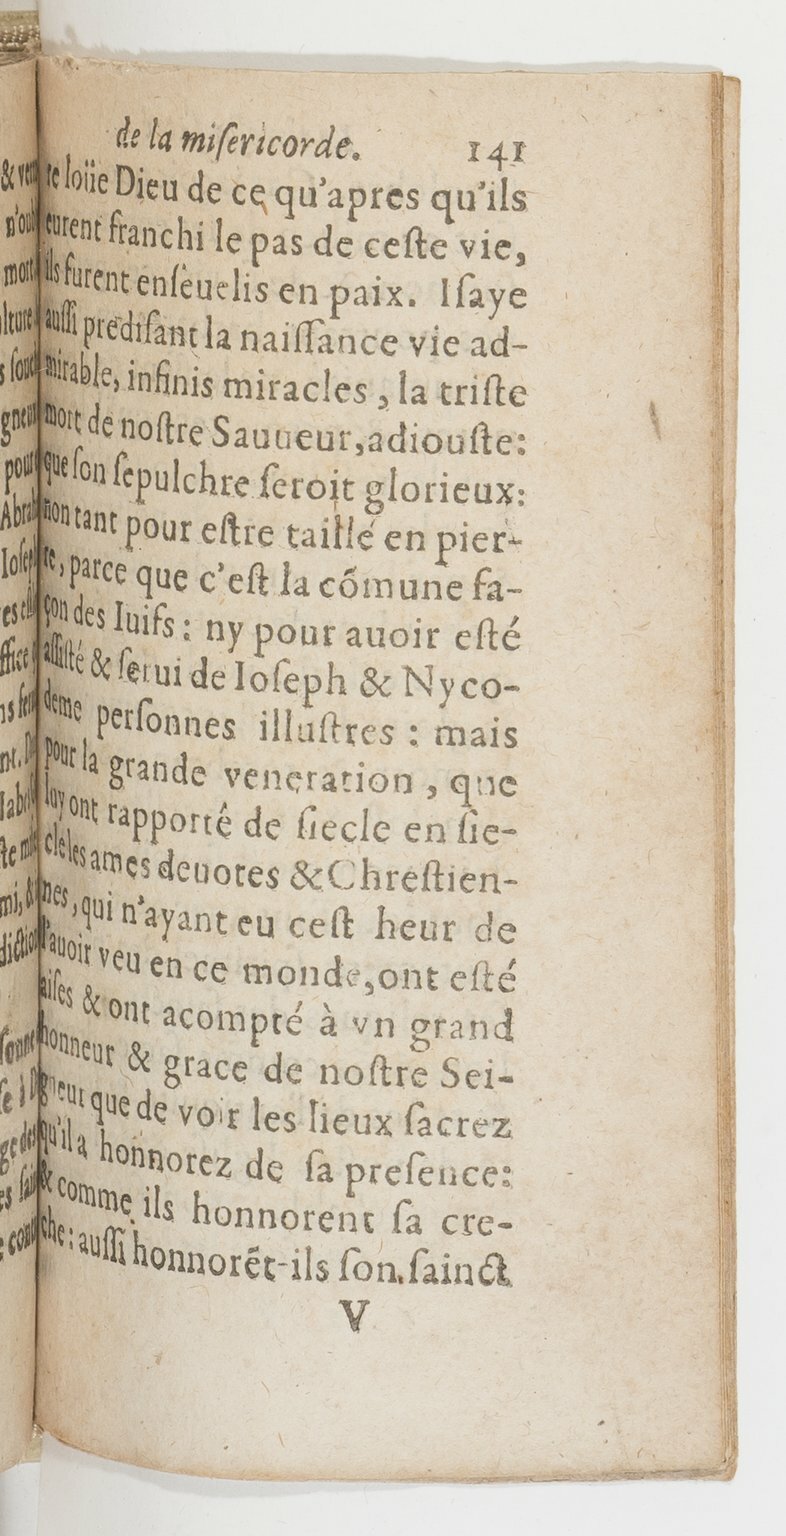 de la miſericorde. 141
re loüe Dieu de ce qu'apres qu'ils
eurent franchi le pas de ceſte vie,
ils furent enſeuelis en paix. Iſaye
auſſi prediſant la naiſſance vie ad-
mirable, infinis miracles, la triſte
mort de noſtre Sauueur, adiouſte:
que ſon ſepulchre ſeroit glorieux:
non tant pour eſtre taillé en pier-
re, parce que c'eſt la cõmune fa-
çon des Iuifs: ny pour auoir eſté
aſſiſté & ſerui de Ioſeph & Nyco-
deme perſonnes illuſtres: mais
pour la grande veneration, que
luy ont rapporté de ſiecle en ſie-
cle les ames deuotes & Chreſtien-
nes, qui n'ayant eu ceſt heur de
l'auoir veu en ce monde, ont eſté
aiſes & ont acompté à vn grand
honneur & grace de noſtre Sei-
gneur que de voir les lieux ſacrez
qu'il a honnorez de ſa preſence:
& comme ils honnorent ſa cre-
che: auſſi honnorẽt-ils ſon ſainct
V